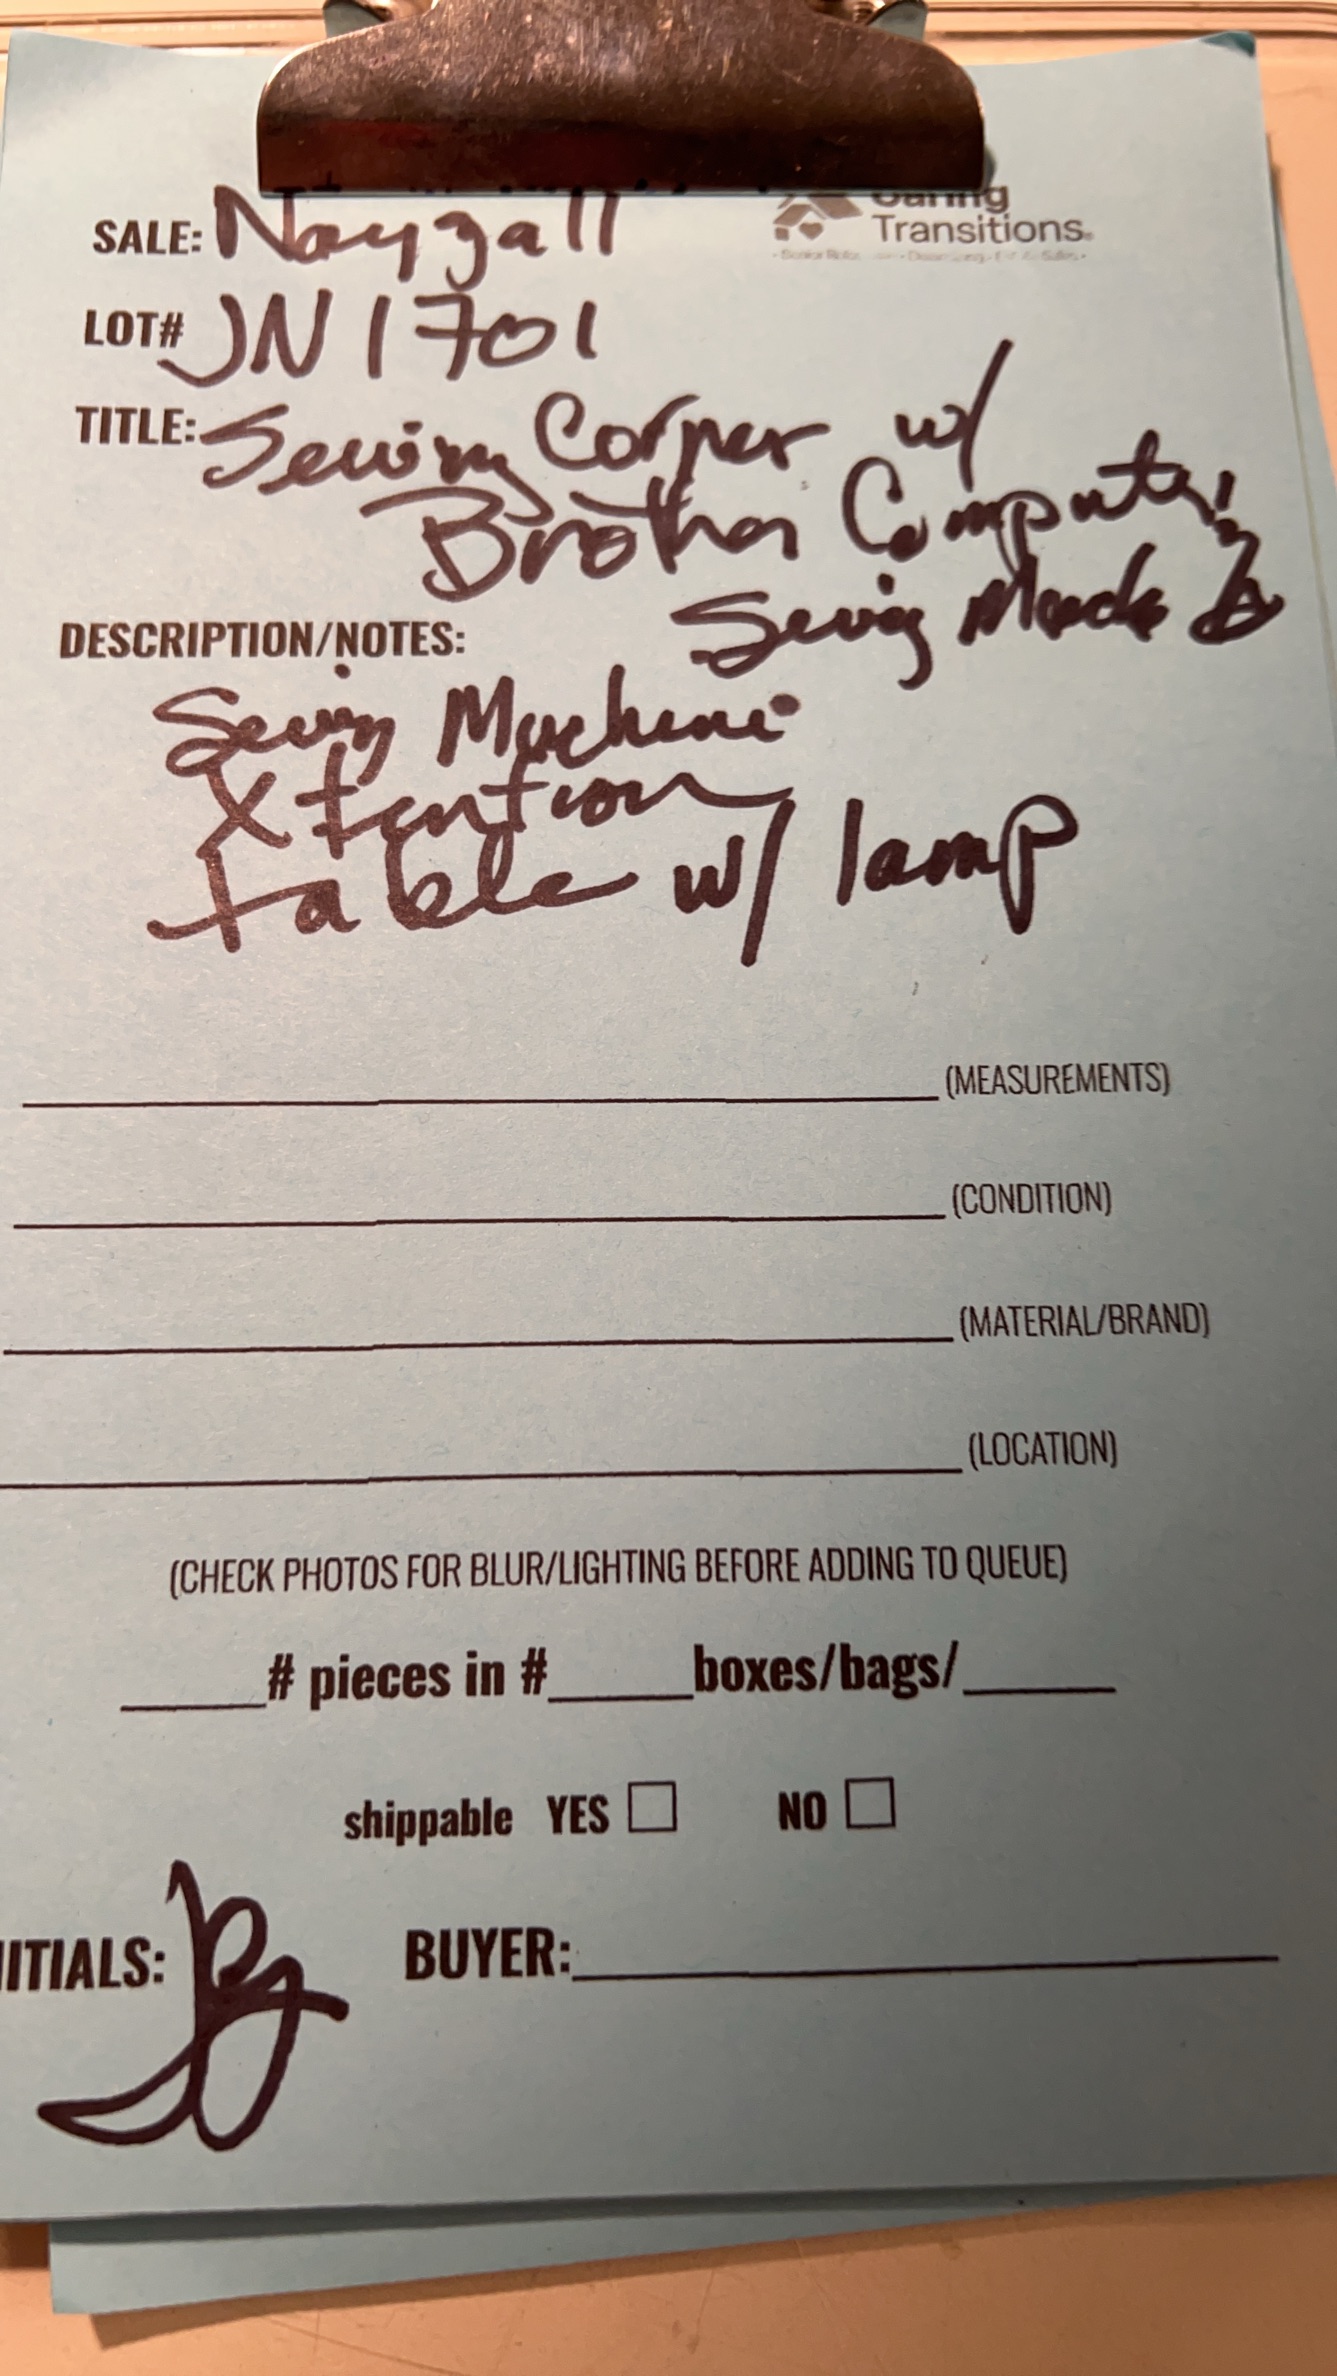 Caring
Transitions
SALE: Nayzall
LOT# JN1701
TITLE: Sewing Corner w/
Brother Computer
Sewing
DESCRIPTION/NOTES:
Sewing Machine
Xtention
table w/ lamp
(MEASUREMENTS)
(CONDITION)
(MATERIAL/BRAND)
(LOCATION)
(CHECK PHOTOS FOR BLUR/LIGHTING BEFORE ADDING TO QUEUE)
# pieces in # boxes/bags/
shippable YES NO
ITIALS: BUYER: